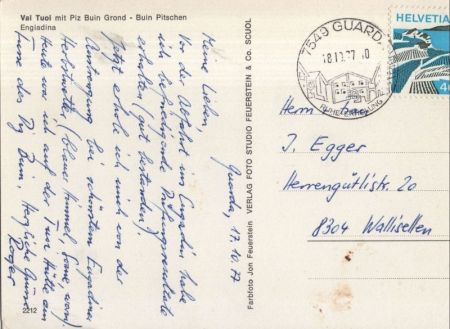 Val Tuoi mit Piz Buin Grond - Buin Pitschen
Engiadina
Guarda, 17.10.77
Meine Lieben,
Vor der Abfahrt ins Engadin habe
ich befriedigende Prüfungsresultate
erhalten (gut bestanden).
Jetzt erhole ich mich von der
Anstrengung bei schönstem Engadiner
Herbstwetter, (blauer Himmel, Sonne, warm).
Heute war ich auf der Tuoi Hütte am
Fusse des Piz Buin. Herzliche Grüsse
Roger
2212
Farbfoto Jon Feuerstein VERLAG FOTO STUDIO FEUERSTEIN & Co. SCUOL
7549 GUARDA
18.10.77
HELVETIA
40
Herrn
J. Egger
Herrengütlistr. 20
8304 Wallisellen